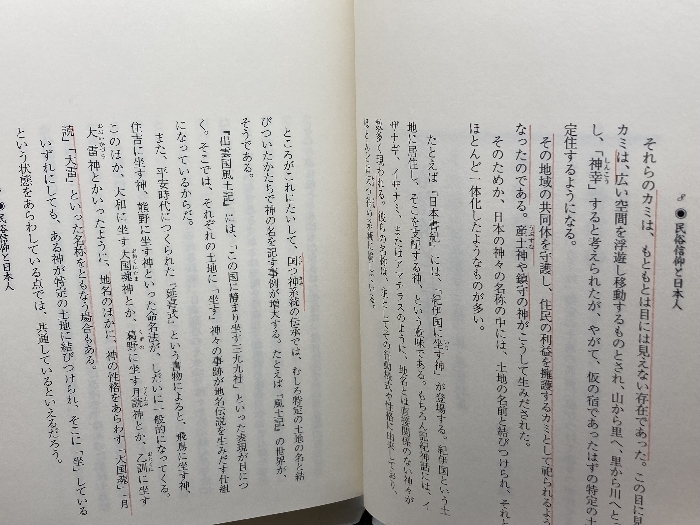 ●民俗信仰と日本人
それらのカミは、もともとは目には見えない存在であった。この目に見
カミは、広い空間を浮遊し移動するものとされ、山から里へ、里から川へと
し、「神幸」すると考えられたが、やがて、仮の宿であったはずの特定の土
定住するようになる。
その地域の共同体を守護し、住民の利益を擁護するカミとして祀られるよう
なったのである。産土神や鎮守の神がこうして生みだされた。
そのためか、日本の神々の名称の中には、土地の名前と結びつけられ、それと
ほとんど一体化したようなものが多い。
たとえば『日本書紀』には、「紀伊国に坐す神」が登場する。紀伊国という土
地に居住し、そこを支配する神、という意味である。もちろん記紀神話には、イ
ザナギ、イザナミ、またはアマテラスのように、地名とは直接関係のない神々が
数多く現われる。彼らの名称は、主としてその行動様式や性格に由来しており、
ところがこれにたいして、国つ神系統の伝承では、むしろ特定の土地の名と結
びついたかたちで神の名を記す事例が増大する。たとえば『風土記』の世界が、
そうである。
『出雲国風土記』には、「この国に静まり坐す三九九社」といった表現が目につ
く。そこでは、それぞれの土地に「坐す」神々の事跡が地名伝説を生みだす仕組
になっているからだ。
また、平安時代につくられた『延喜式』という書物によると、飛鳥に坐す神、
住吉に坐す神、熊野に坐す神といった命名法が、しだいに一般的になってくる。
このほか、大和に坐す大国魂神とか、葛野に坐す月読神とか、乙訓に坐す
大雷神とかいったように、地名のほかに、神の性格をあらわす「大国魂」「月
読」「大雷」といった名称をともなう場合もある。
いずれにしても、ある神が特定の土地に結びつけられ、そこに「坐」している
という状態をあらわしている点では、共通しているといえるだろう。
●民俗信仰と日本人